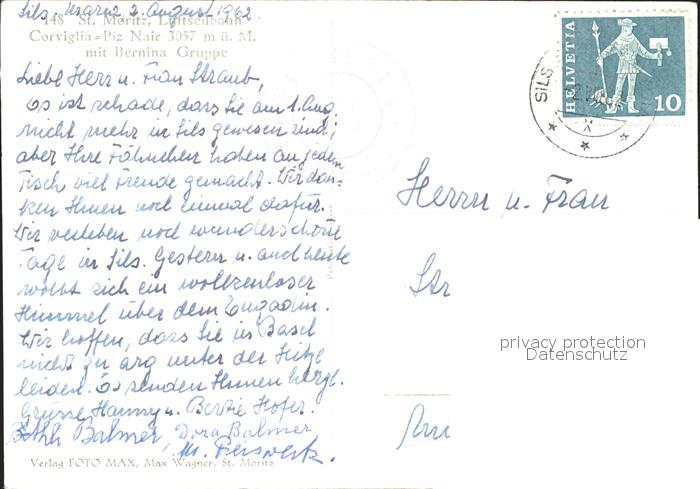 Sils Maria 2. August 1962
148 St. Moritz, Luftseilbahn
Corviglia-Piz Nair 3057 m ü. M.
mit Bernina Gruppe
Liebe Herr u. Frau Straub,
es ist schade, dass Sie am 1. Aug.
nicht mehr in Sils gewesen sind,
aber Ihre Fähnchen haben an jedem
Tisch viel Freude gemacht. Wir dan-
ken Ihnen noch einmal dafür.
Wir verleben noch wunderschöne
Tage in Sils. Gestern u. auch heute
wölbt sich ein wolkenloser
Himmel über dem Engadin.
Wir hoffen, dass Sie in Basel
nicht zu arg unter der Hitze
leiden. Es senden Ihnen herzl.
Grüsse Hanny u. Bertie Hofer.
Balmer, Dora Balmer
Verlag FOTO MAX, Max Wagner, St. Moritz
HELVETIA
10
SILS
Herrn u. Frau
Str
privacy protection
Datenschutz